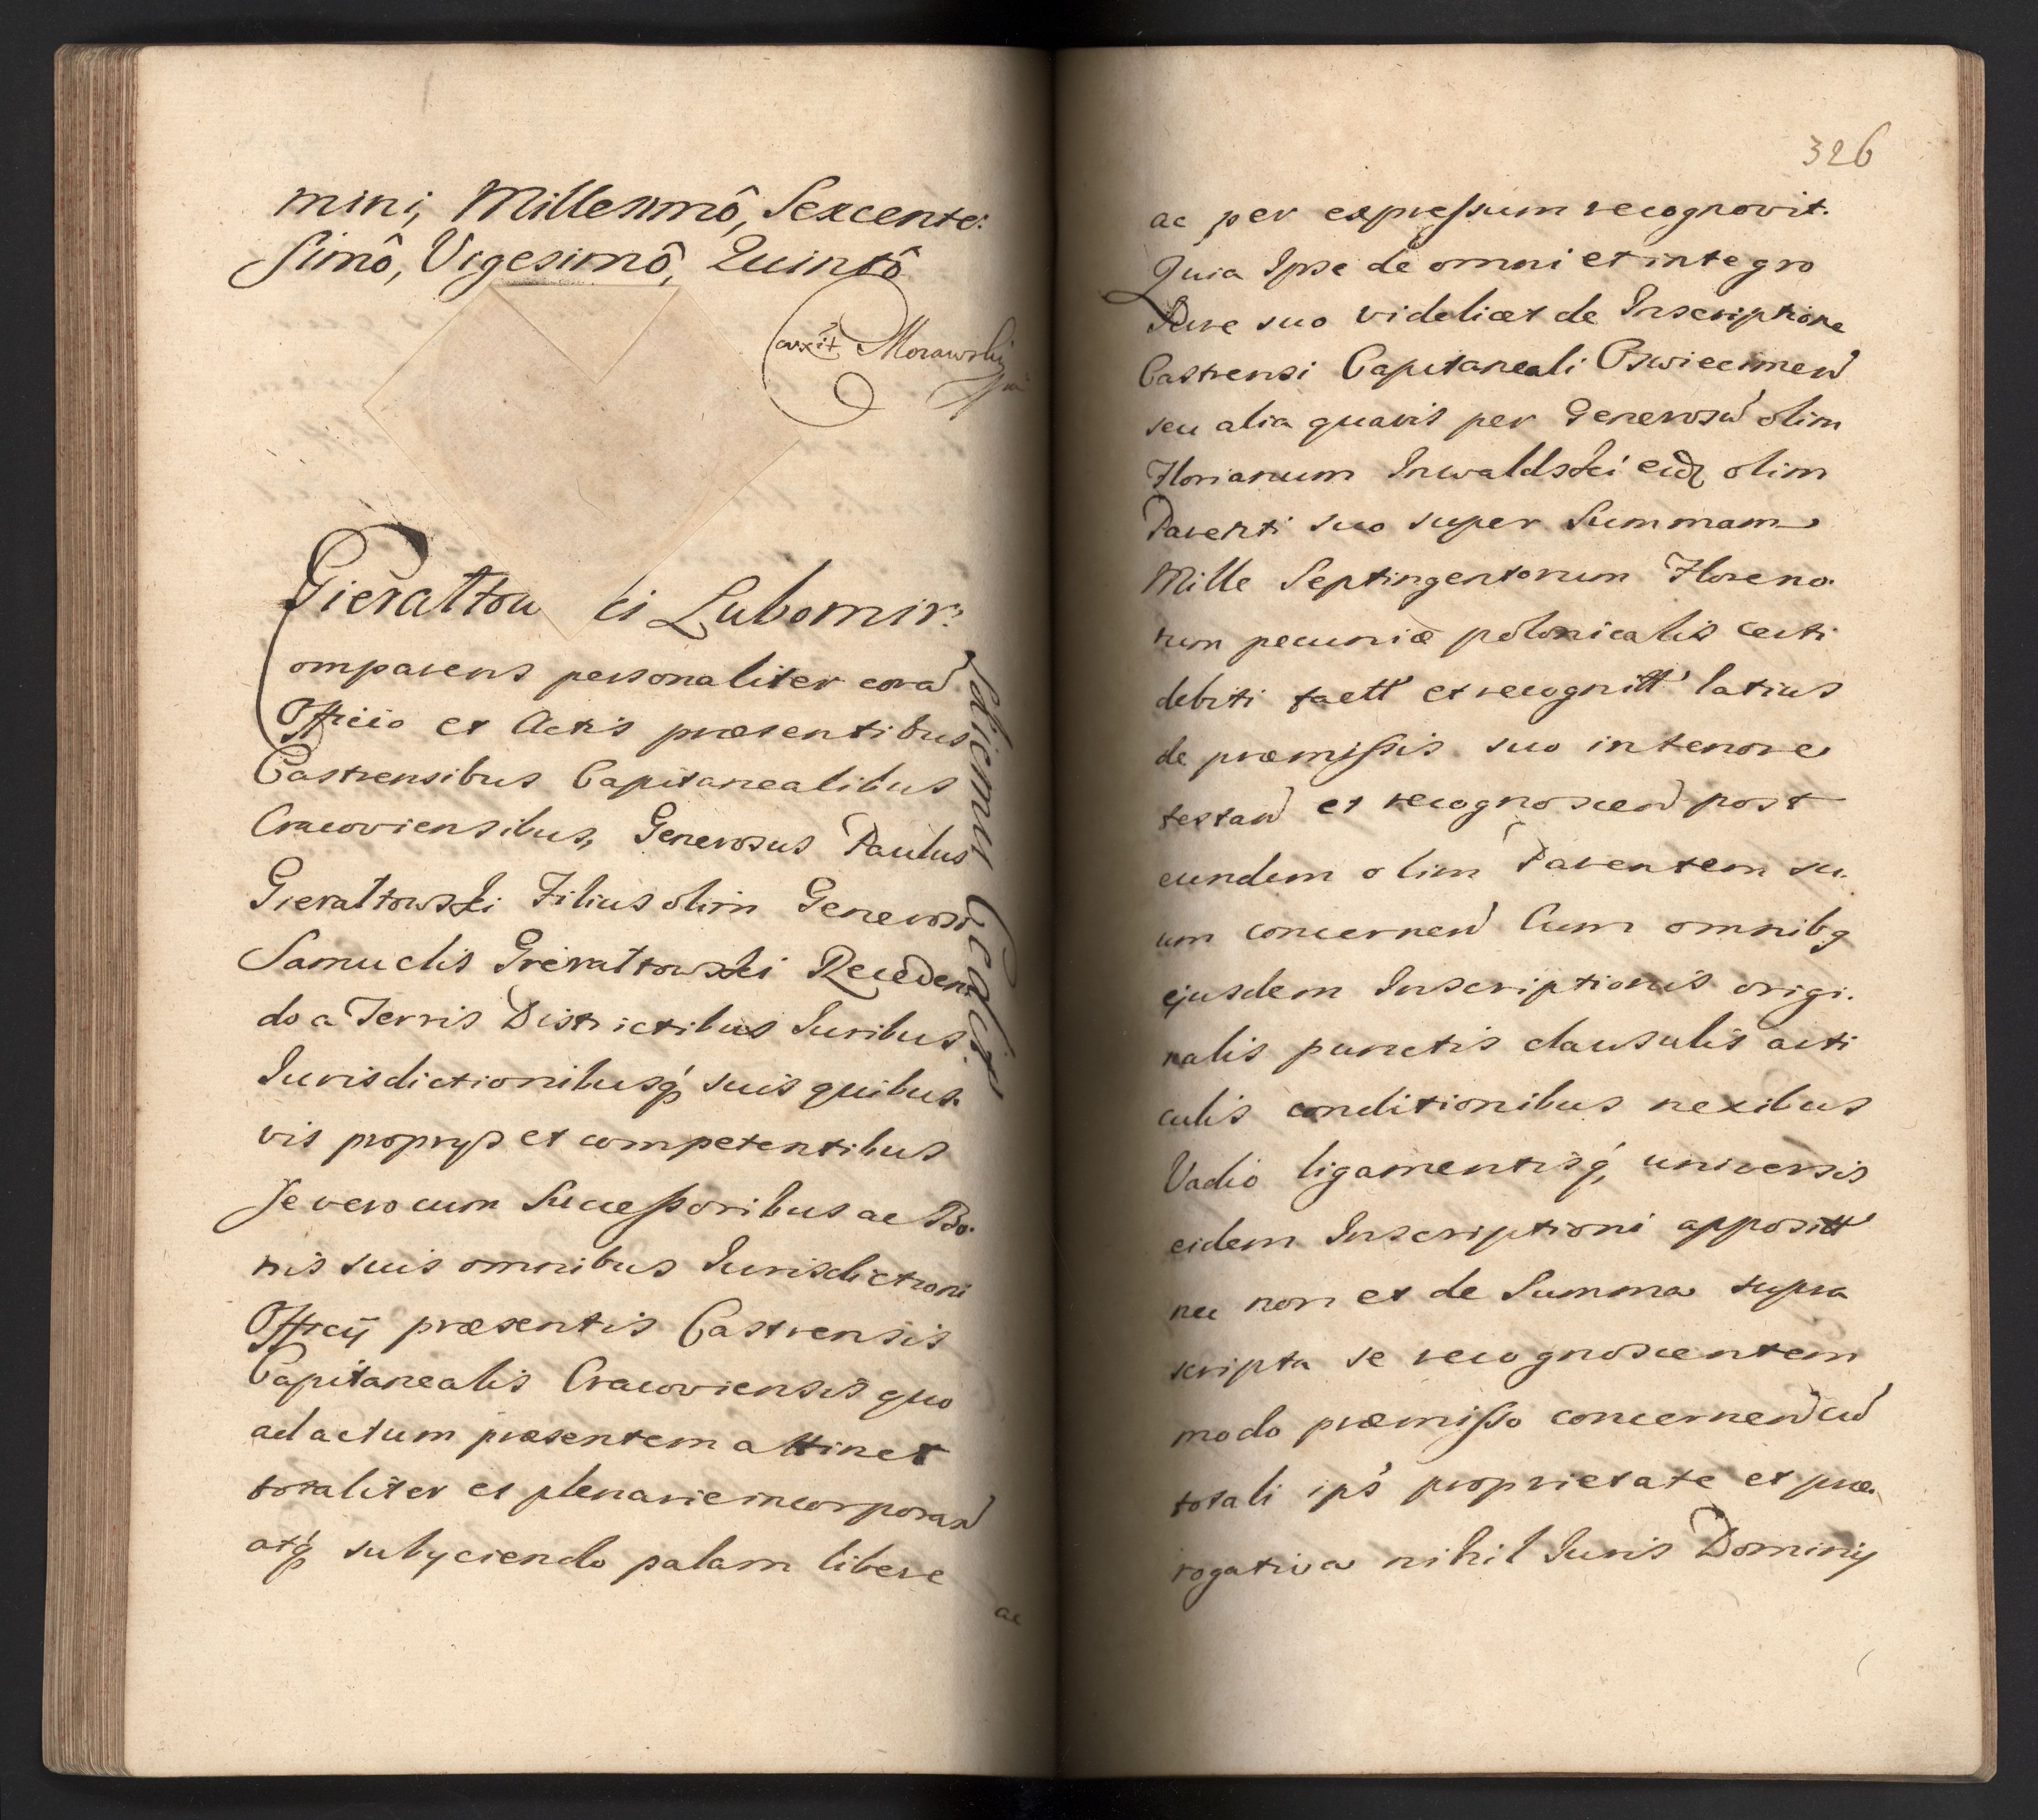 mini, Millesimô, Sexcente:
simô, Vigesimô, Quintô
Morawski
Gierałtow ki Lubomir:
omparens personaliter corã
Officio et Actis præsentibus
Castrensibus Capitanealibus
Cracoviensibus, Generosus Paulus
Gierałtowski Filius olim Generosi
Samuelis Gierałtowski Receden
do a Terris Districtibus Iuribus
Iurisdictionibusq́ suis quibus.
vis proprys et competentibus
Se vero cum Successoribus ac Bo.
nis suis omnibus Iurisdictioni
Officij præsentis Castrensis
Capitanealis Cracoviensis quo
ad actum præsentem attinet
totaliter et plenarie incorporand
atq́ subyciendo palam libere
ac
326
ac per expressum recognovit.
Quia Ipse de omni et integro
Iure suo videlicet de Inscriptione
Castrensi Capitaneali Oswiecimen
seu alia quavis per Generosũ olim
Florianum Inwaldski eidꝫ olim
Parenti suo super Summam
Mille Septingentorum Floreno.
rum pecuniæ polonicalis certi
debiti factt et recognitt latius
de præmissis suo in tenore
testand et recognoscend post
eundem olim Parentem su.
um concernend Cum omnibꝫ
ejusdem Inscriptionis origi.
nalis punctis clausulis arti
culis conditionibus nexibus
Vadio ligamentisq́, universis
eidem Inscriptioni appositt
nec non et de Summa supra
scripta se recognoscentem
modo præmisso concernend cũ
totali ips proprietate et præ.
rogativa nihil Iuris Dominij